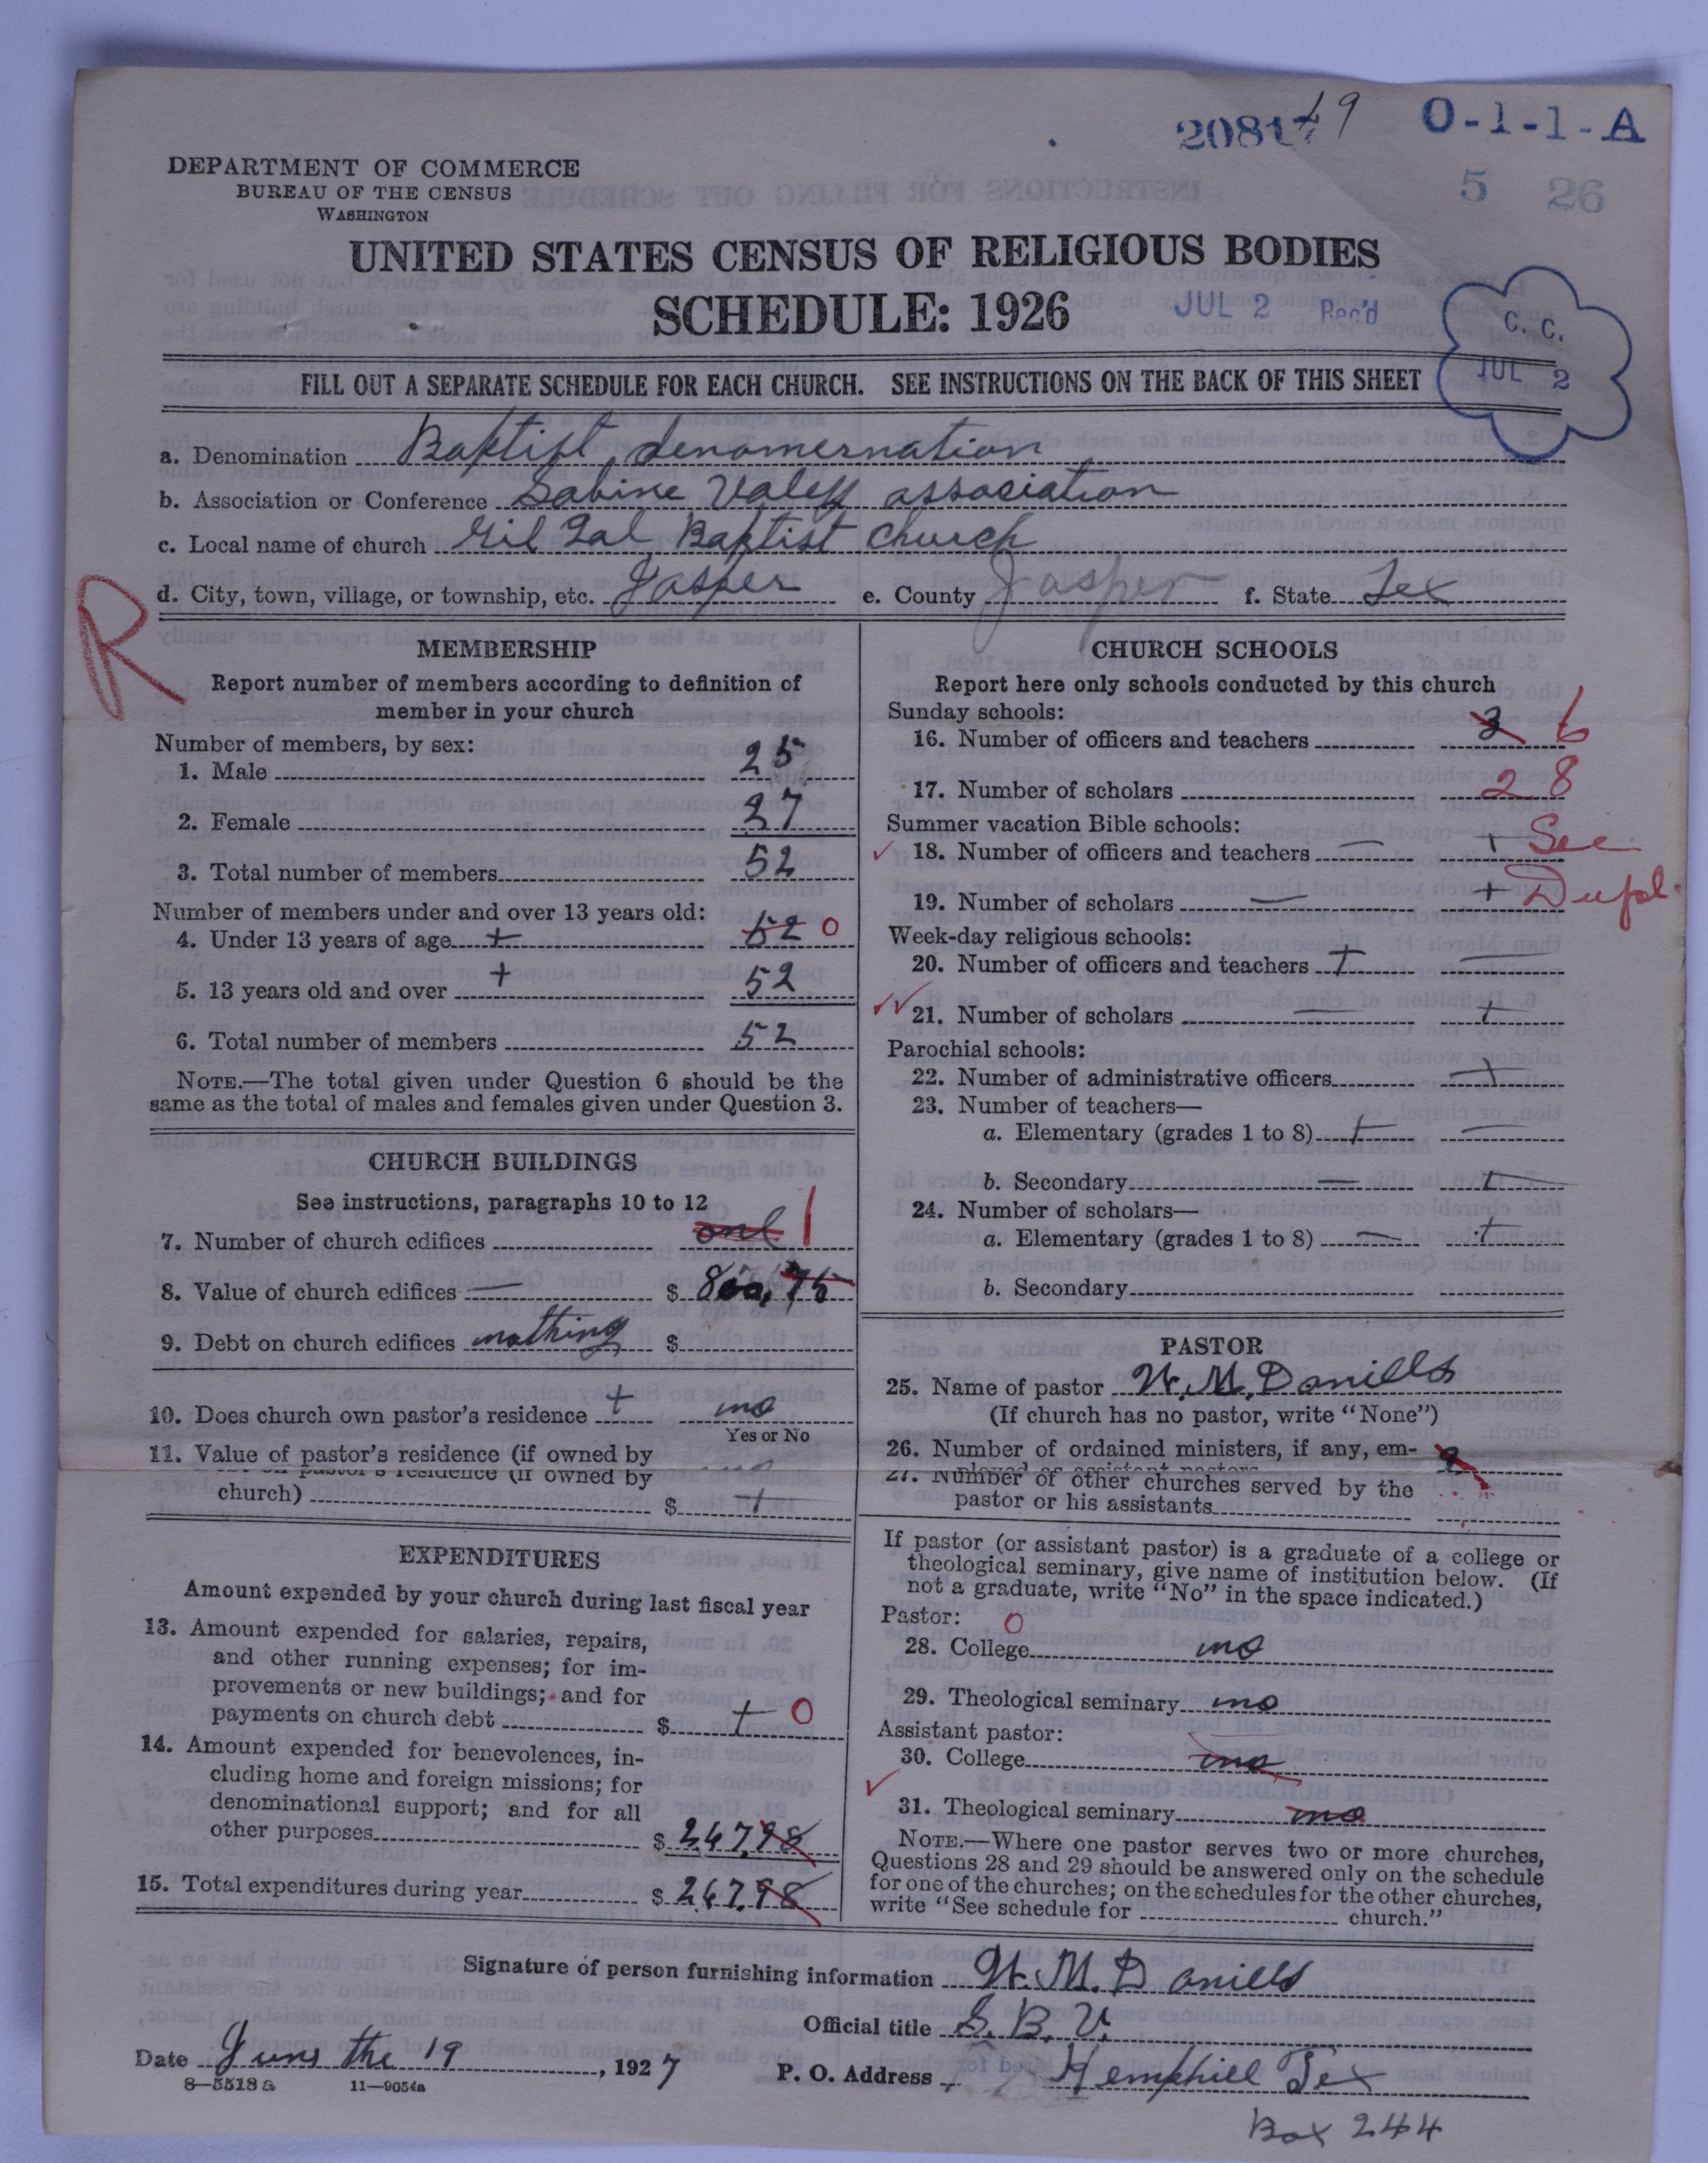 20817 19 O-1-1-A
5 26
DEPARTMENT OF COMMERCE
BUREAU OF THE CENSUS
WASHINGTON
UNITED STATES CENSUS OF RELIGIOUS BODIES
SCHEDULE: 1926
JUL 2 Rec'd
C. C.
JUL 2
FILL OUT A SEPARATE SCHEDULE FOR EACH CHURCH. SEE INSTRUCTIONS ON THE BACK OF THIS SHEET
a. Denomination Baptist denomernation
b. Association or Conference Sabine Valey association
c. Local name of church Gil Gal Baptist Church
d. City, town, village, or township, etc. Jasper e. County Jasper f. State Tex
R
MEMBERSHIP
Report number of members according to definition of
member in your church
Number of members, by sex:
1. Male 25
2. Female 27
3. Total number of members 52
Number of members under and over 13 years old:
4. Under 13 years of age + 52 0
5. 13 years old and over + 52
6. Total number of members 52
NOTE.—The total given under Question 6 should be the
same as the total of males and females given under Question 3.
CHURCH BUILDINGS
See instructions, paragraphs 10 to 12
7. Number of church edifices one 1
8. Value of church edifices — $ 800,75
9. Debt on church edifices nothing $
10. Does church own pastor's residence + no
Yes or No
11. Value of pastor's residence (if owned by
pastor's residence (if owned by
church) $ +
EXPENDITURES
Amount expended by your church during last fiscal year
13. Amount expended for salaries, repairs,
and other running expenses; for im-
provements or new buildings; and for
payments on church debt $ + 0
14. Amount expended for benevolences, in-
cluding home and foreign missions; for
denominational support; and for all
other purposes $ 247.98
15. Total expenditures during year $ 247.98
CHURCH SCHOOLS
Report here only schools conducted by this church
Sunday schools:
16. Number of officers and teachers 3 6
17. Number of scholars 28
Summer vacation Bible schools:
18. Number of officers and teachers — + See
19. Number of scholars — + Dupl.
Week-day religious schools:
20. Number of officers and teachers + —
21. Number of scholars — +
Parochial schools:
22. Number of administrative officers +
23. Number of teachers—
a. Elementary (grades 1 to 8) + —
b. Secondary — +
24. Number of scholars—
a. Elementary (grades 1 to 8) — +
b. Secondary
PASTOR
25. Name of pastor W. M. Daniells
(If church has no pastor, write "None")
26. Number of ordained ministers, if any, em-
27. Number of other churches served by the
pastor or his assistants
If pastor (or assistant pastor) is a graduate of a college or
theological seminary, give name of institution below. (If
not a graduate, write "No" in the space indicated.)
Pastor: 0
28. College no
29. Theological seminary no
Assistant pastor:
30. College no
31. Theological seminary no
NOTE.—Where one pastor serves two or more churches,
Questions 28 and 29 should be answered only on the schedule
for one of the churches; on the schedules for the other churches,
write "See schedule for church."
Signature of person furnishing information W. M. Daniells
Official title S. B. V.
Date Juns the 19, 1927 P. O. Address Hemphill Tex
8—5518a 11—9054a
Box 244